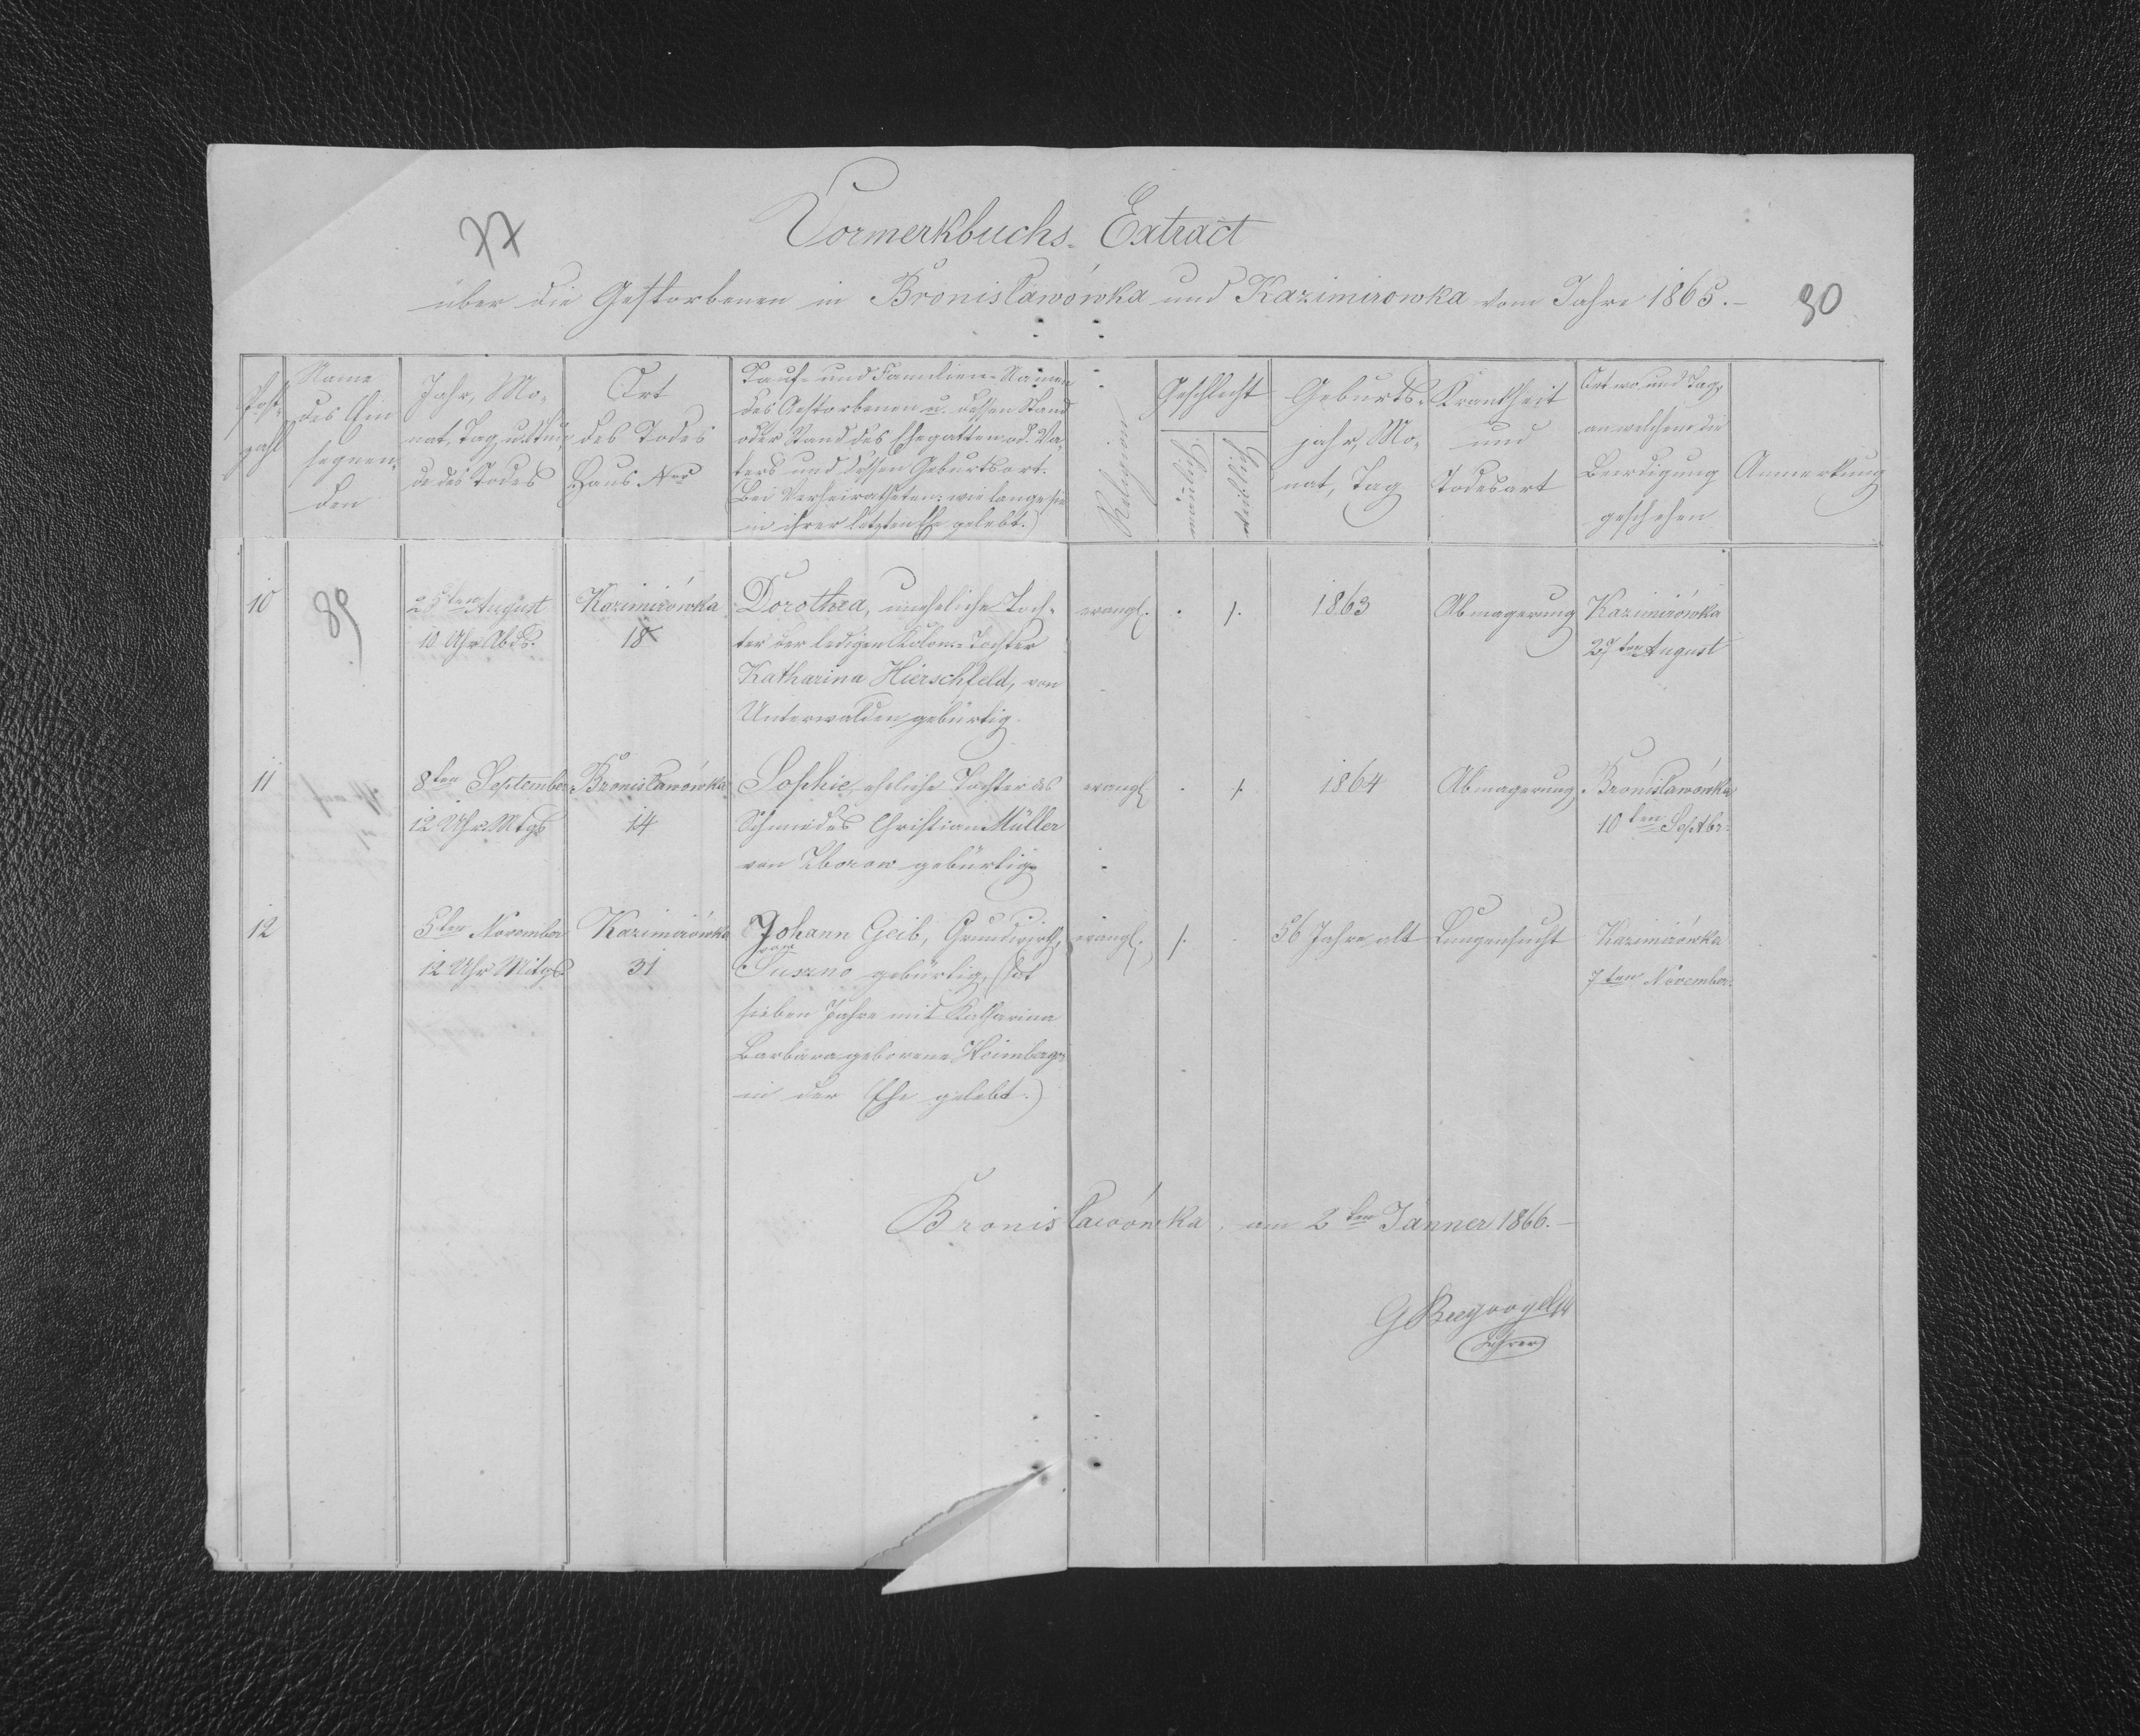 77
Vormerkbuchs-Extract
über die Gestorbenen in Bronisławówka und Kazimirowka vom Jahre 1865.-
90
Post-
zahl
Name
des Ein
segnen-
den
Jahr, Mo-
nat, Tag u. Stun-
de des Todes
Ort
des Todes
Haus Nro
Tauf- und Familien-Namen
des Gestorbenen u. dessen Stand
oder Stand des Ehegatten od. Va-
ters und dessen Geburtsort.
(Bei Verheiratheten: wie lange sie
in ihrer letzten Ehe gelebt.)
Religion
Geschlecht
männlich
weiblich
Geburts-
jahr, Mo-
nat, Tag
Krankheit
und
Todesart
Ort wo, und Tag,
an welchem die
Beerdigung
geschehen
Anmerkung
10
89
25ten August
10 Uhr Abds.
Kazimirówka
18
Dorothea, uneheliche Toch-
ter der ledigen Kolon.-Tochter
Katharina Hierschfeld, von
Unterwalden gebürtig.
evangl.
1.
1863
Abmagerung
Kazimirówka
27ten August
11
8ten September
12 Uhr Mtgs
Bronisławówka
14
Sophie, eheliche Tochter des
Schmiedes Christian Müller
von Zborow gebürtig
evangl.
1.
1864
Abmagerung
Bronisławówka
10ten Septbr.
12
5ten November
12 Uhr Mitgs
Kazimirówka
31
Johann Geib, Grundwirth,
von
Suszno gebürtig, (hat
sieben Jahre mit Katharina
Barbara geborene Heimberger
in der Ehe gelebt.)
evangl.
1.
56 Jahre alt
Lungensucht
Kazimirówka
7ten November.
Bronisławówka, am 2ten Jänner 1866.-
Lehrer